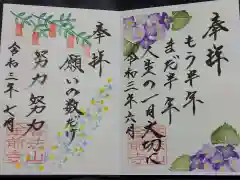 奉拝
もう半年
まだ半年
人生の一日大切に
令和三年六月
奉拝
願いの数だけ
努力 努力
令和三年七月